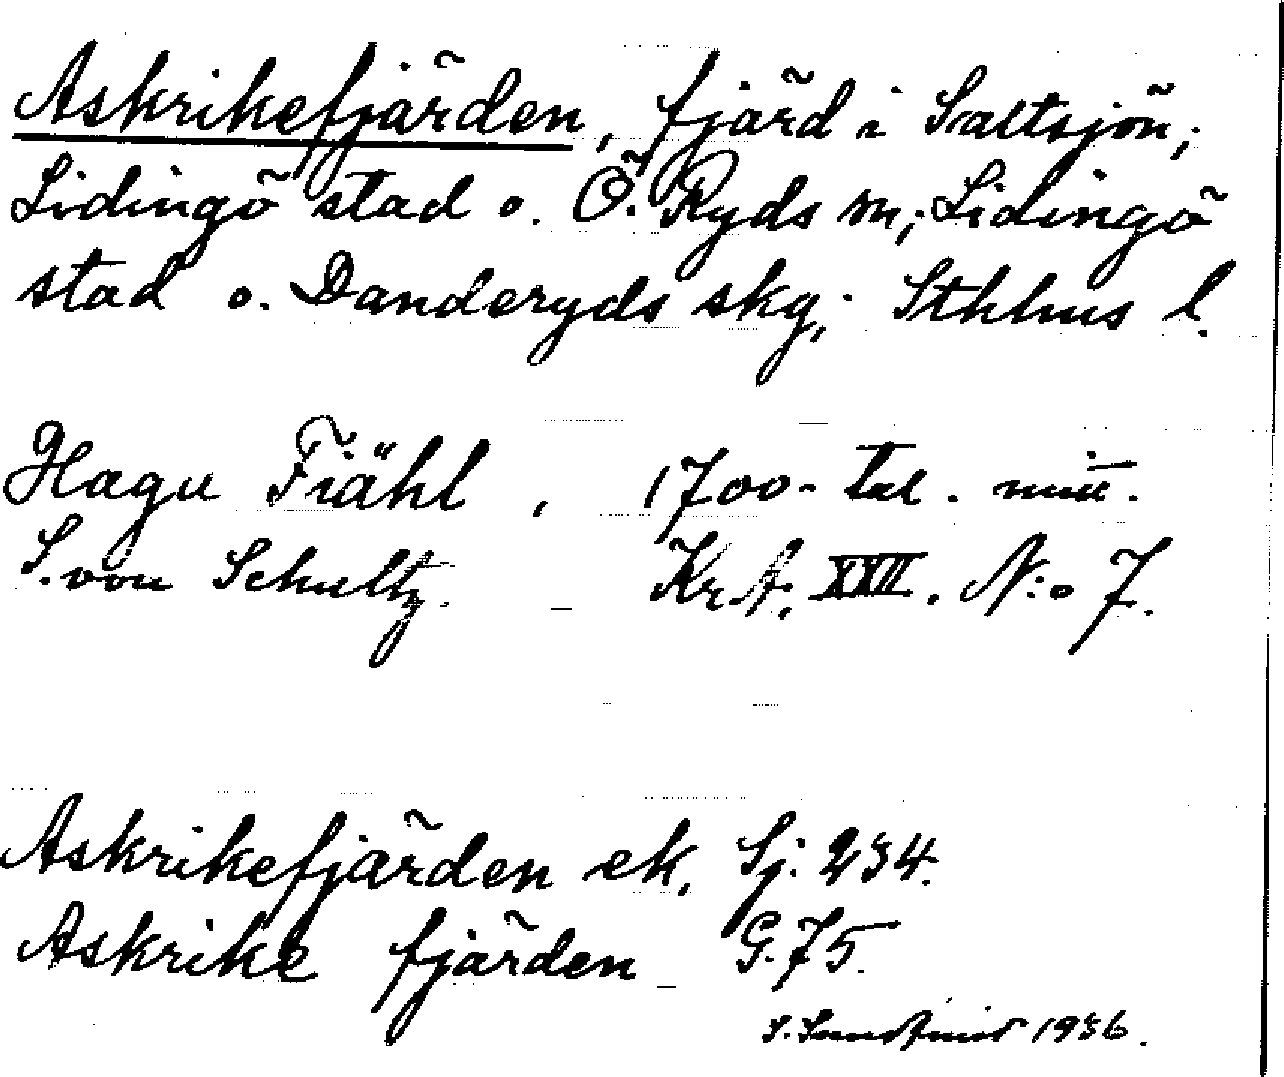 Askrikefjärden, fjärd i Saltsjön;
Lidingö stad o. Ö. Ryds sn; Lidingö
stad o. Danderyds skg; Sthlms l.
Hagu Fiähl, 1700-tal. mitt.
S. von Schultz. Kr.A. XXII. N:o 7.
Askrikefjärden ek. Sj. 234.
Askrike fjärden G. 75.
1936.